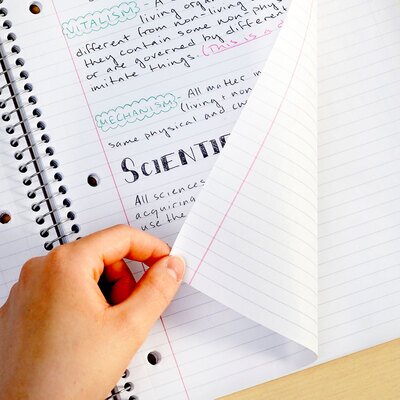 VITALISM - A
living organ
different from non-living
they contain some non-phys
or are governed by different
imitate things. (This is a
MECHANISM - All matter in
(living + non
same physical and ch
SCIENTIF
All sciences
acquiring
use the